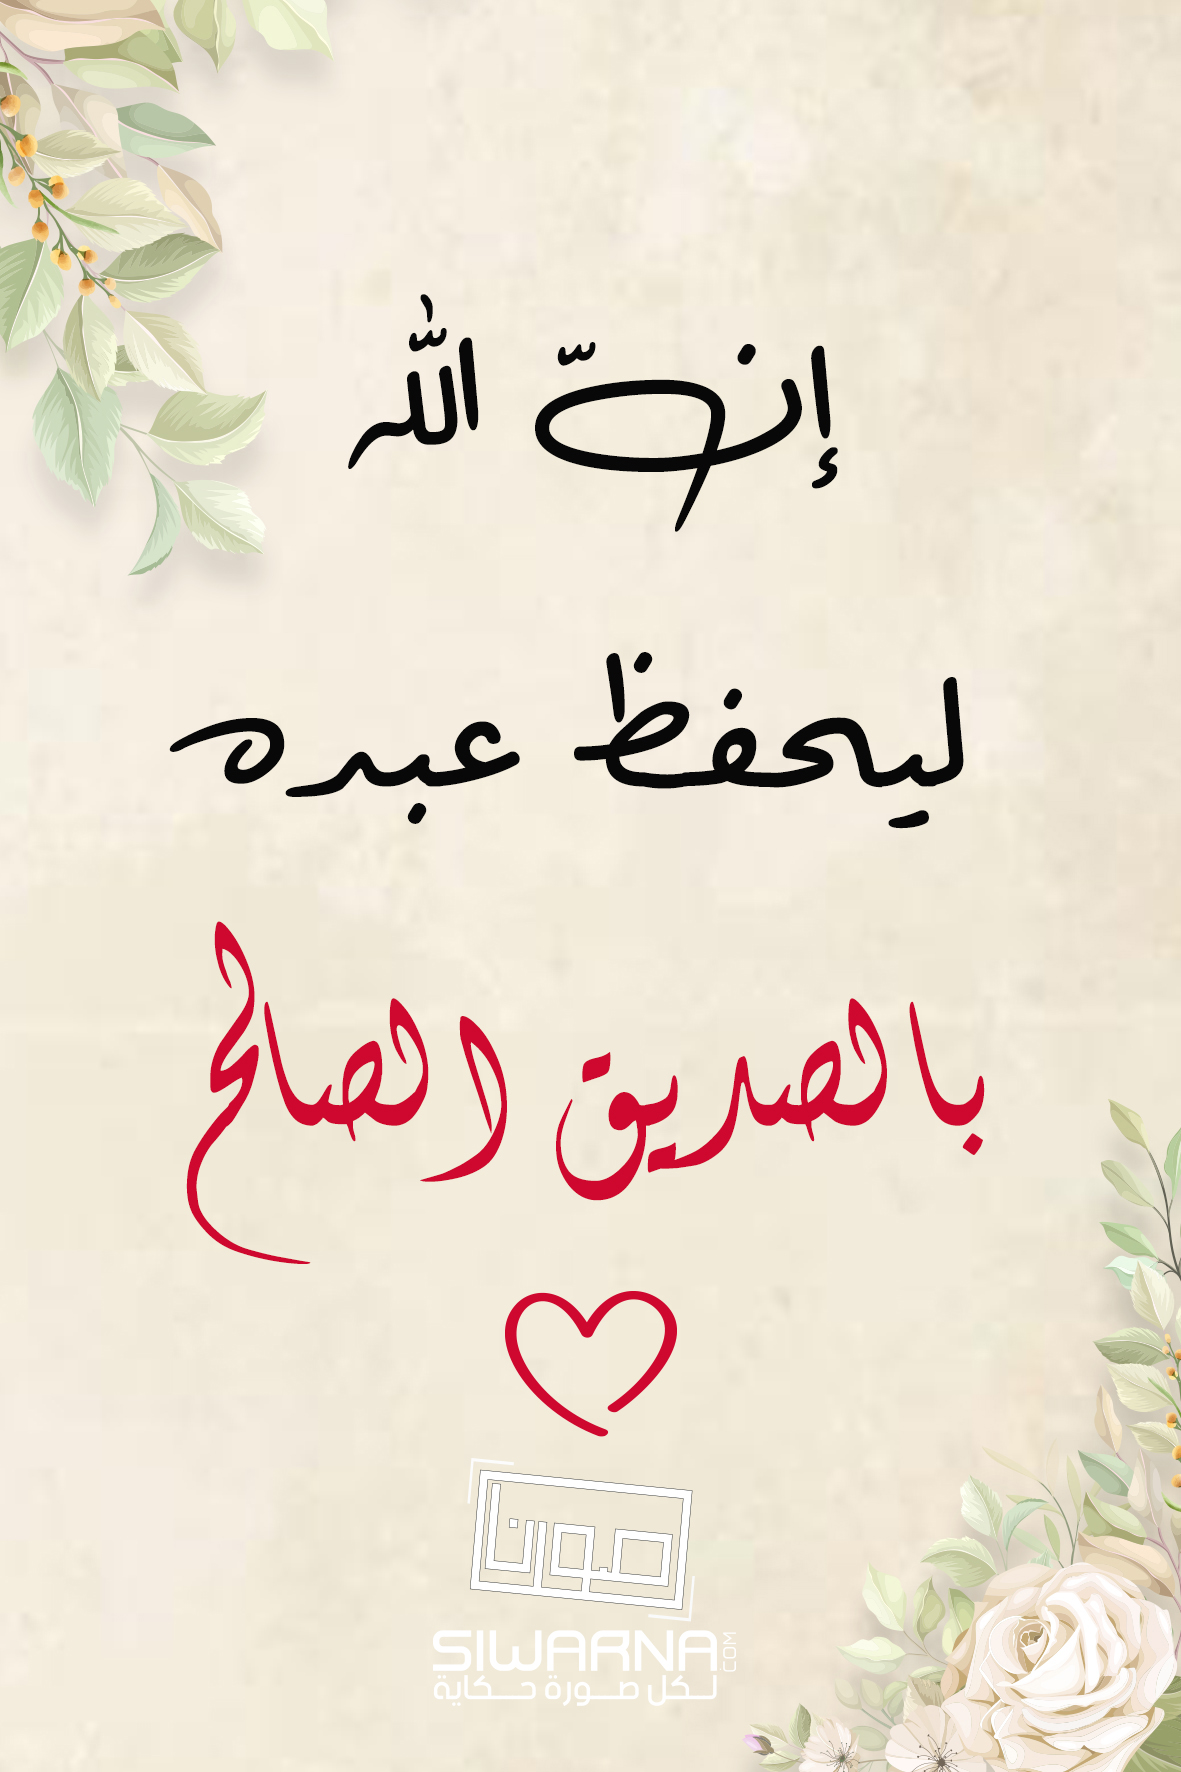 إنّ اللّٰه
ليحفظ عبده
بالصديق الصالح
صورنا
SIWARNA.COM
لكل صورة حكاية